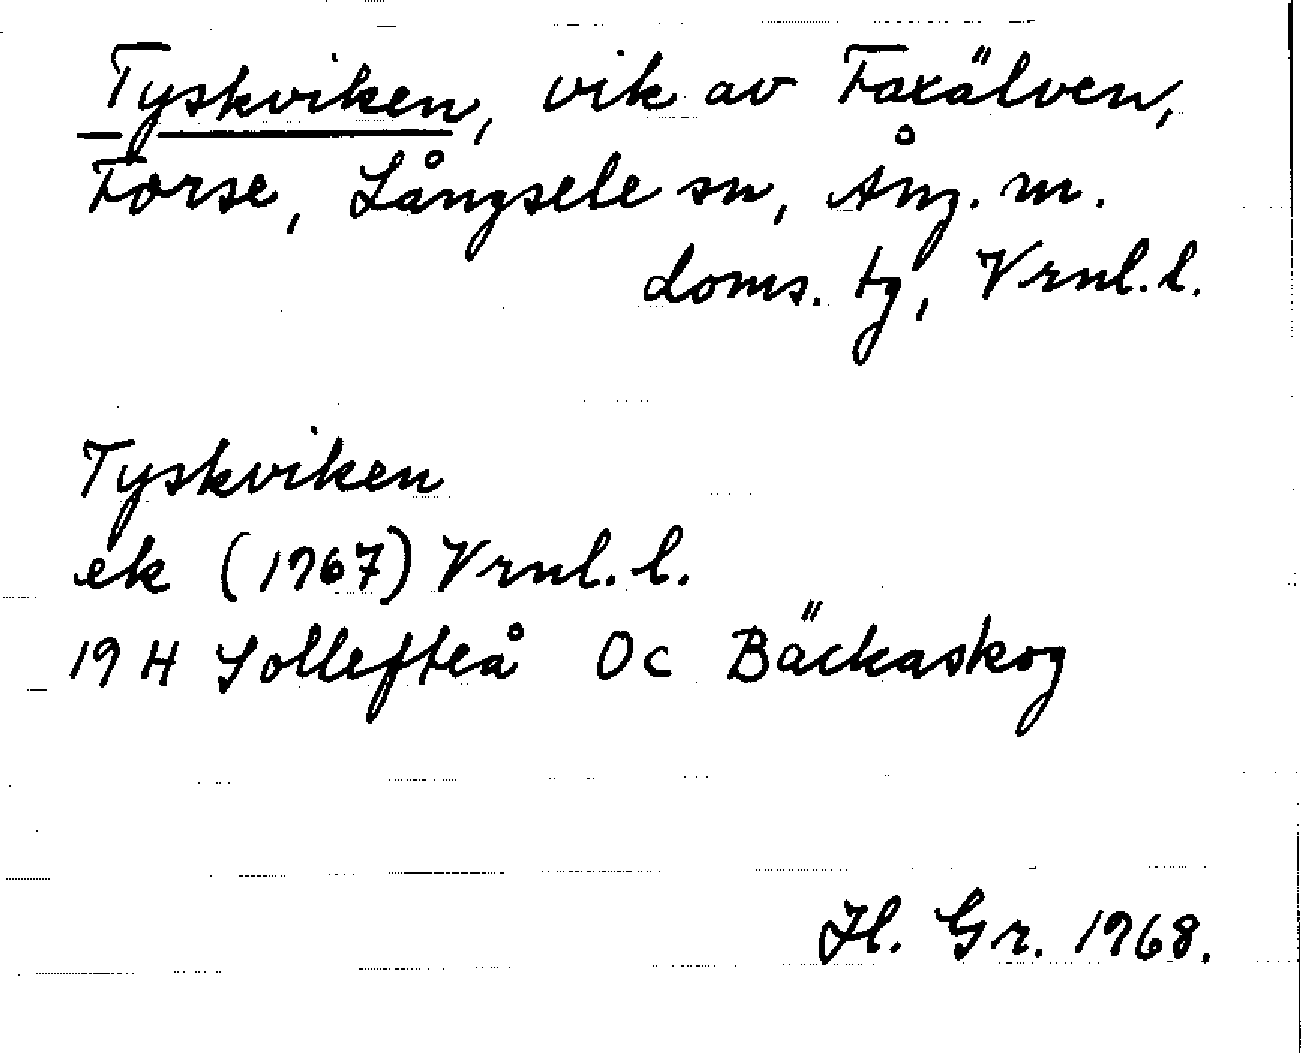 Tyskviken, vik av Faxälven,
Forse, Långsele sn, Ång. m.
doms. tg, Vrnl. l.
Tyskviken
ek (1967) Vrnl. l.
19 H Sollefteå Oc Bäckaskog
Hl. Gr. 1968.